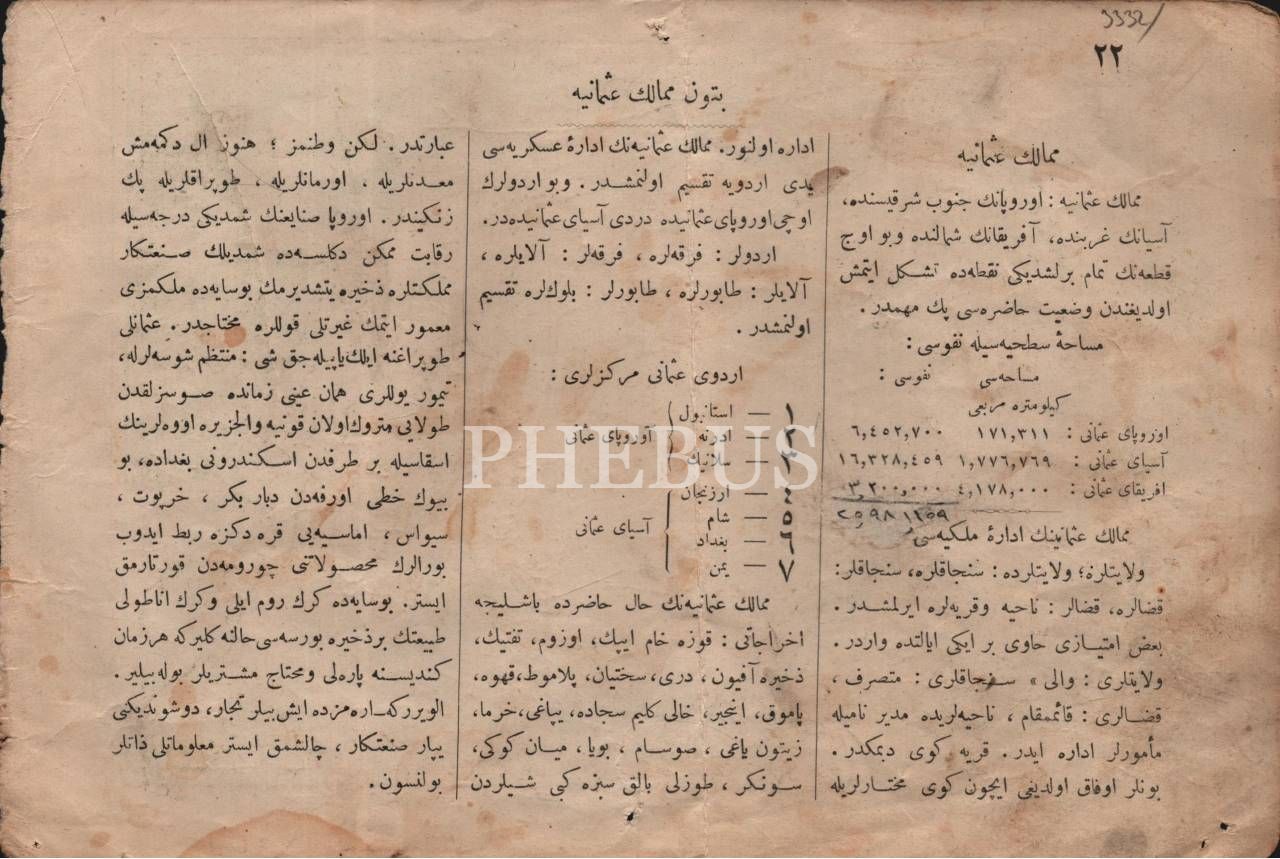 3332/
٢٢
بتون ممالك عثمانيه
ممالك عثمانيه
ممالك عثمانيه : اوروپانك جنوب شرقيسنده،
آسيانك غربنده، آفريقانك شمالنده وبو اوچ
قطعه‌نك تمام برلشديكى نقطه‌ده تشكل ايتمش
اولديغندن وضعيت حاضره‌سى پك مهمدر.
مساحهٔ سطحيه‌سيله نفوسى :
مساحه‌سى نفوسى :
كيلومتره مربعى
اوروپاى عثمانى : ١٧١,٣١١ ٦,٤٥٢,٧٠٠
آسياى عثمانى : ١,٧٧٦,٧٦٩ ١٦,٣٢٨,٤٥٩
افريقاى عثمانى : ٤,١٧٨,٠٠٠ ٣,٢٠٠,٠٠٠
٢٥٩٨١١٥٩
ممالك عثمانينك ادارهٔ ملكيه‌سى
ولايتلره؛ ولايتلرده : سنجاقلره، سنجاقلر:
قضالره، قضالر : ناحيه وقريه‌لره ايرلمشدر.
بعض امتيازى حاوى بر ايكى ايالتده واردر.
ولايتلرى : والى » سنجاقلرى : متصرف ،
قضالرى : قائممقام ، ناحيه‌لريده مدير ناميله
مأمورلر اداره ايدر. قريه كوى ديمكدر.
بونلر اوفاق اولديغى ايچون كوى مختارلريله
اداره اولنور. ممالك عثمانيه‌نك ادارهٔ عسكريه‌سى
يدى اردويه تقسيم اولنمشدر. وبو اردولرك
اوچى اوروپاى عثمانيده دردى آسياى عثمانيده‌در.
اردولر : فرقه‌لره ، فرقه‌لر : آلايلره ،
آلايلر : طابورلره ، طابورلر : بلوك‌لره تقسيم
اولنمشدر .
اردوى عثمانى مركزلرى :
١ — استانبول
٢ — ادرنه
٣ — سلانيك
آوروپاى عثمانى
٤ — ارزنجان
٥ — شام
٦ — بغداد
٧ — يمن
آسياى عثمانى
ممالك عثمانيه‌نك حال حاضرده باشليجه
اخراجاتى : قوزه خام ايپك، اوزوم، تفتيك،
ذخيره آفيون ، درى، سختيان، پلاموط، قهوه،
پاموق، اينجير، خالى كليم سجاده، يپاغى، خرما،
زيتون ياغى ، صوسام ، بويا ، ميان كوكى،
سونكر ، طوزلى بالق سبزه كبى شيلردن
عبارتدر. لكن وطنمز ؛ هنوز ال دكمه‌مش
معدنلريله ، اورمانلريله ، طوپراقلريله پك
زنكيندر. اوروپا صنايعنك شمديكى درجه‌سيله
رقابت ممكن دكلسه‌ده شمديلك صنعتكار
مملكتلره ذخيره يتشديرمك بوسايه‌ده ملكمزى
معمور ايتمك غيرتلى قوللره محتاجدر. عثمانلى
طوپراغنه ايلك ياپيله‌جق شى : منتظم شوسه‌لرله،
تيمور يوللرى همان عينى زمانده صوسزلقدن
طولايى متروك اولان قونيه والجزيره اووه‌لرينك
اسقاسيله بر طرفدن اسكندرونى بغداده، بو
بيوك خطى اورفه‌دن ديار بكر ، خرپوت ،
سيواس ، اماسيه‌يى قره دكزه ربط ايدوب
بورالرك محصولاتنى چورومه‌دن قورتارمق
ايستر. بوسايه‌ده كرك روم ايلى وكرك اناطولى
طبيعتك بر ذخيره بورسه‌سى حالنه كليركه هر زمان
كنديسنه پاره‌لى ومحتاج مشتريلر بوله بيلير.
الويررکه آره‌مزده ايش بيلر تجار، دوشونديكنى
ياپار صنعتكار ، چالشمق ايستر معلوماتلى ذاتلر
بولنسون .
PHEBUS